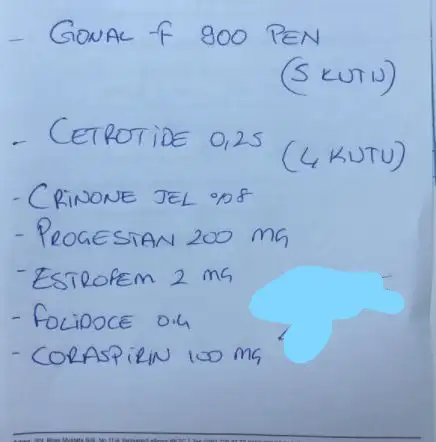 - GONAL-f 900 PEN
(5 KUTU)
- CETROTİDE 0,25
(4 KUTU)
- CRİNONE JEL %8
- PROGESTAN 200 MG
- ESTROFEM 2 MG
- FOLİDOCE 0.4
- CORASPİRİN 100 MG